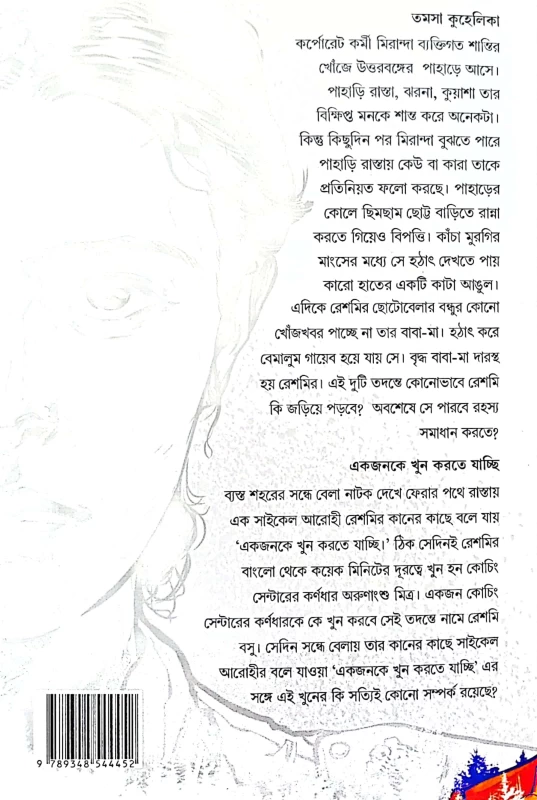 তমসা কুহেলিকা
কর্পোরেট কর্মী মিরান্দা ব্যক্তিগত শান্তির
খোঁজে উত্তরবঙ্গের পাহাড়ে আসে।
পাহাড়ি রাস্তা, ঝরনা, কুয়াশা তার
বিক্ষিপ্ত মনকে শান্ত করে অনেকটা।
কিন্তু কিছুদিন পর মিরান্দা বুঝতে পারে
পাহাড়ি রাস্তায় কেউ বা কারা তাকে
প্রতিনিয়ত ফলো করছে। পাহাড়ের
কোলে ছিমছাম ছোট্ট বাড়িতে রান্না
করতে গিয়েও বিপত্তি। কাঁচা মুরগির
মাংসের মধ্যে সে হঠাৎ দেখতে পায়
কারো হাতের একটি কাটা আঙুল।
এদিকে রেশমির ছোটোবেলার বন্ধুর কোনো
খোঁজখবর পাচ্ছে না তার বাবা-মা। হঠাৎ করে
বেমালুম গায়েব হয়ে যায় সে। বৃদ্ধ বাবা-মা দারস্থ
হয় রেশমির। এই দুটি তদন্তে কোনোভাবে রেশমি
কি জড়িয়ে পড়বে? অবশেষে সে পারবে রহস্য
সমাধান করতে?
একজনকে খুন করতে যাচ্ছি
ব্যস্ত শহরের সন্ধে বেলা নাটক দেখে ফেরার পথে রাস্তায়
এক সাইকেল আরোহী রেশমির কানের কাছে বলে যায়
‘একজনকে খুন করতে যাচ্ছি।’ ঠিক সেদিনই রেশমির
বাংলো থেকে কয়েক মিনিটের দূরত্বে খুন হন কোচিং
সেন্টারের কর্ণধার অরুণাংশু মিত্র। একজন কোচিং
সেন্টারের কর্ণধারকে কে খুন করবে সেই তদন্তে নামে রেশমি
বসু। সেদিন সন্ধে বেলায় তার কানের কাছে সাইকেল
আরোহীর বলে যাওয়া ‘একজনকে খুন করতে যাচ্ছি’ এর
সঙ্গে এই খুনের কি সত্যিই কোনো সম্পর্ক রয়েছে?
9 789348 544452